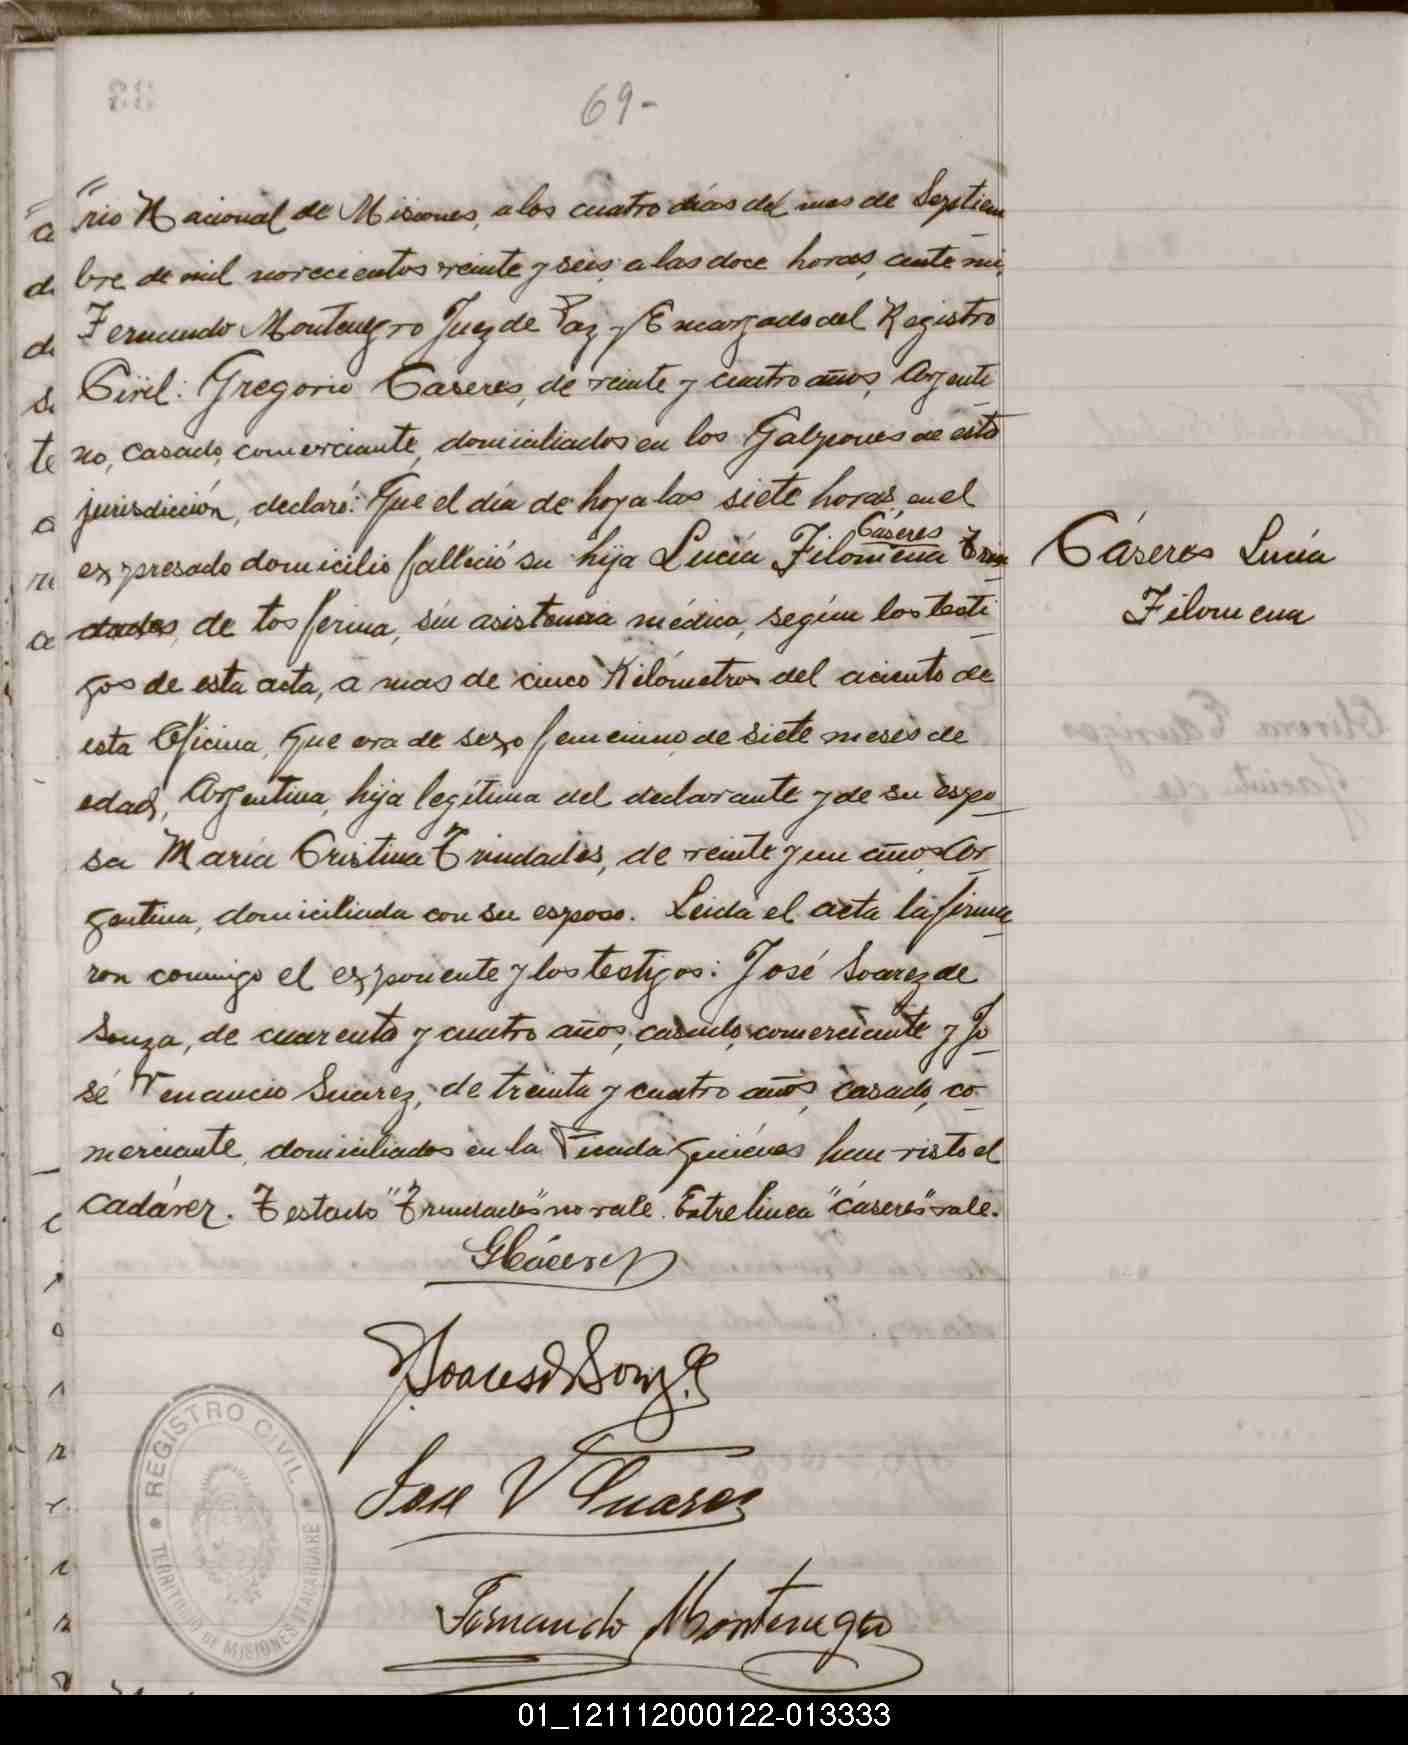 69-
rio Nacional de Misiones, a los cuatro días del mes de Septiem
bre de mil novecientos veinte y seis, a las doce horas, ante mi,
Fernando Montenegro Juez de Paz y Encargado del Registro
Civil: Gregorio Caseres, de veinte y cuatro años, Argenti
no, casado, comerciante, domiciliados en los Galpones de esta
jurisdicción, declaró: Que el día de hoy a las siete horas, en el
Cáseres
expresado domicilio falleció su hija Lucía Filomena Trin
dades, de tos ferina, sin asistencia médica, según los testi
gos de esta acta, a mas de cinco Kilómetros del aciento de
esta Oficina, que era de sexo femenino, de siete meses de
edad, Argentina, hija legítima del declarante y de su espo
sa María Cristina Trindades, de veinte y un años, Ar
gentina, domiciliada con su esposo. Leida el acta la firma
ron conmigo el exponente y los testigos: José Soarez de
Souza, de cuarenta y cuatro años, casado, comerciante y Jo
sé Venancio Suárez, de treinta y cuatro años, casado, co
merciante, domiciliados en la Picada quiénes han visto el
cadáver. Testado "Trindades" no vale. Entrelinea "cáseres" vale.
Cáseres Lucía
Filomena
GCáceres
José V Suarez
Fernando Montenegro
REGISTRO CIVIL
TERRITORIO DE MISIONES ITACARUARE
01_121112000122-013333